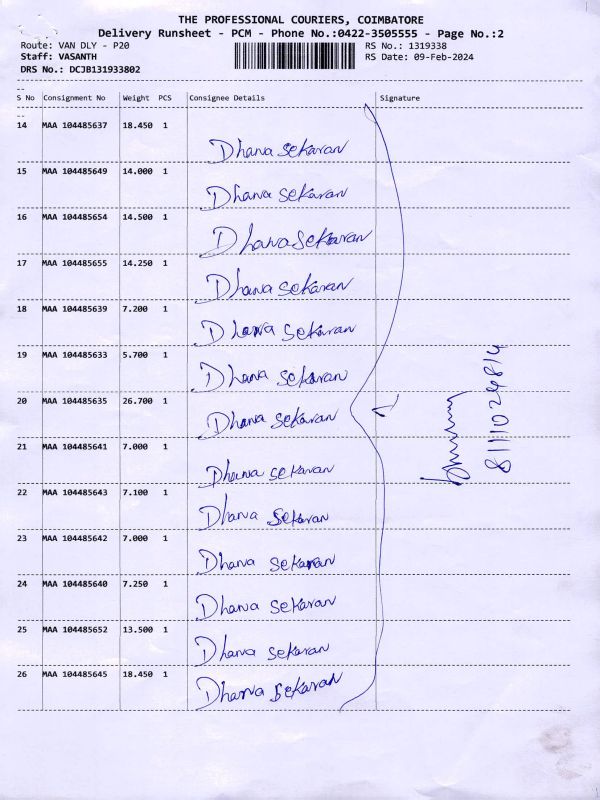 THE PROFESSIONAL COURIERS, COIMBATORE
Delivery Runsheet - PCM - Phone No.:0422-3505555 - Page No.:2
Route: VAN DLY - P20 RS No.: 1319338
Staff: VASANTH RS Date: 09-Feb-2024
DRS No.: DCJB131933802
S No Consignment No Weight PCS Consignee Details Signature
14 MAA 104485637 18.450 1
Dhana sekaran
15 MAA 104485649 14.000 1
Dhana sekaran
16 MAA 104485654 14.500 1
Dhana sekaran
17 MAA 104485655 14.250 1
Dhana sekaran
18 MAA 104485639 7.200 1
Dhana sekaran
19 MAA 104485633 5.700 1
Dhana sekaran
20 MAA 104485635 26.700 1
Dhana sekaran
21 MAA 104485641 7.000 1
Dhana sekaran
22 MAA 104485643 7.100 1
Dhana sekaran
23 MAA 104485642 7.000 1
Dhana sekaran
24 MAA 104485640 7.250 1
Dhana sekaran
25 MAA 104485652 13.500 1
Dhana sekaran
26 MAA 104485645 18.450 1
Dhana sekaran
8111024814